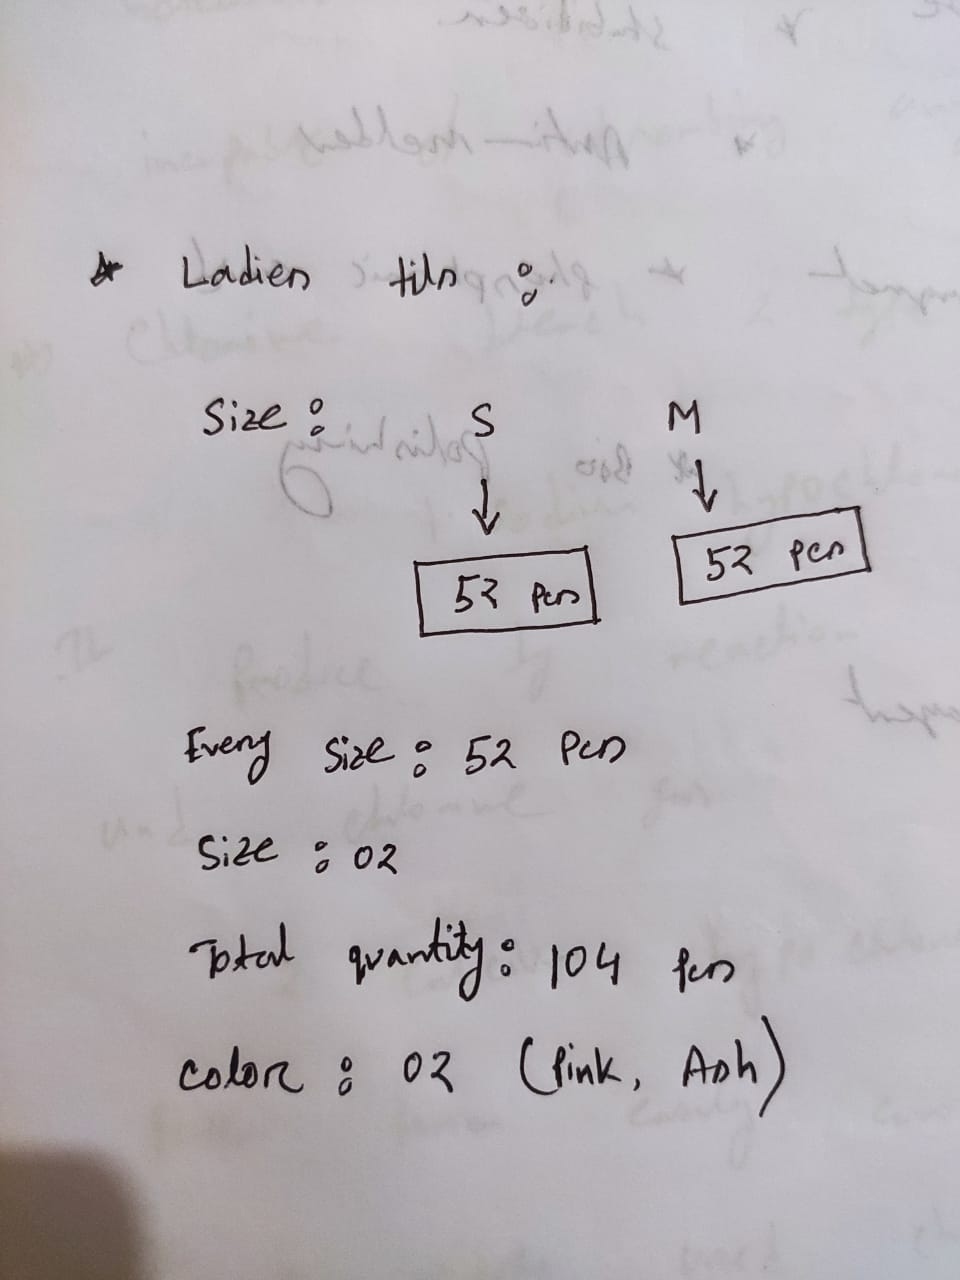 * Ladies tils :
Size : S M
↓ ↓
52 Pcs 52 Pcs
Every Size : 52 Pcs
Size : 02
Total quantity : 104 Pcs
Color : 02 (Pink, Ash)